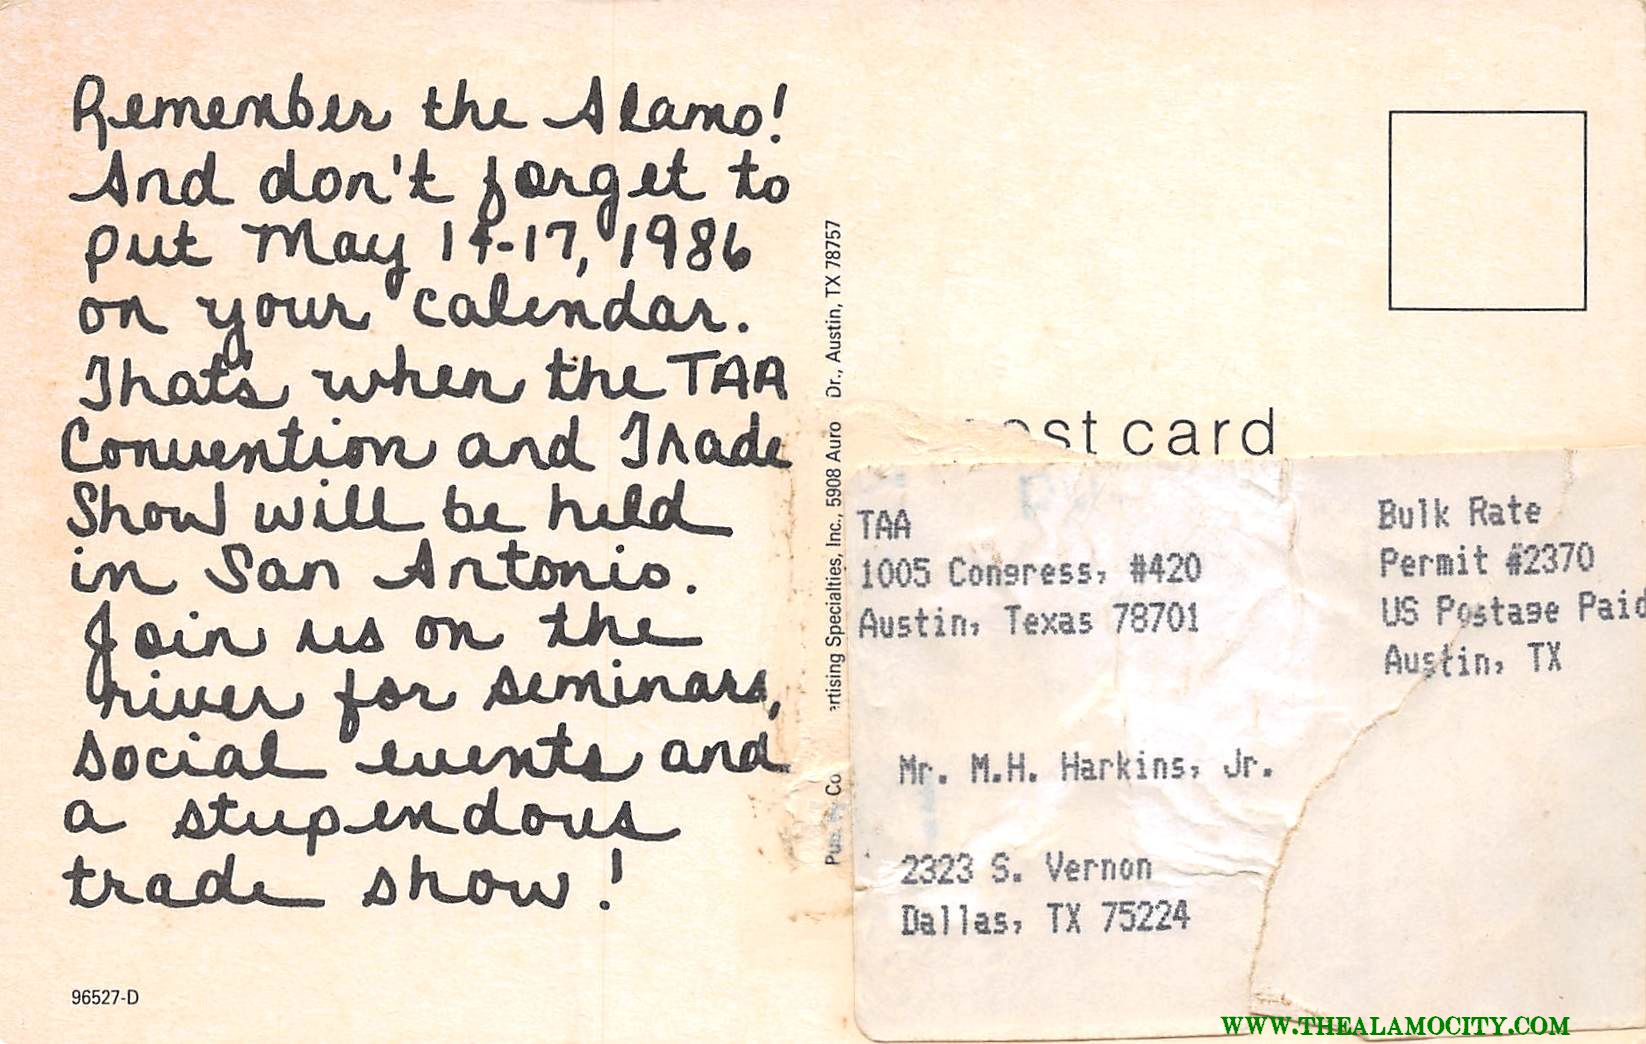 Remember the Alamo!
And don't forget to
put May 14-17, 1986
on your calendar.
That's when the TAA
Convention and Trade
Show will be held
in San Antonio.
Join us on the
river for seminars,
social events and
a stupendous
trade show!
96527-D
rtising Specialties, Inc., 5908 Auro Dr., Austin, TX 78757
ost card
TAA
1005 Congress, #420
Austin, Texas 78701
Bulk Rate
Permit #2370
US Postage Paid
Austin, TX
Mr. M.H. Harkins, Jr.
2323 S. Vernon
Dallas, TX 75224
WWW.THEALAMOCITY.COM